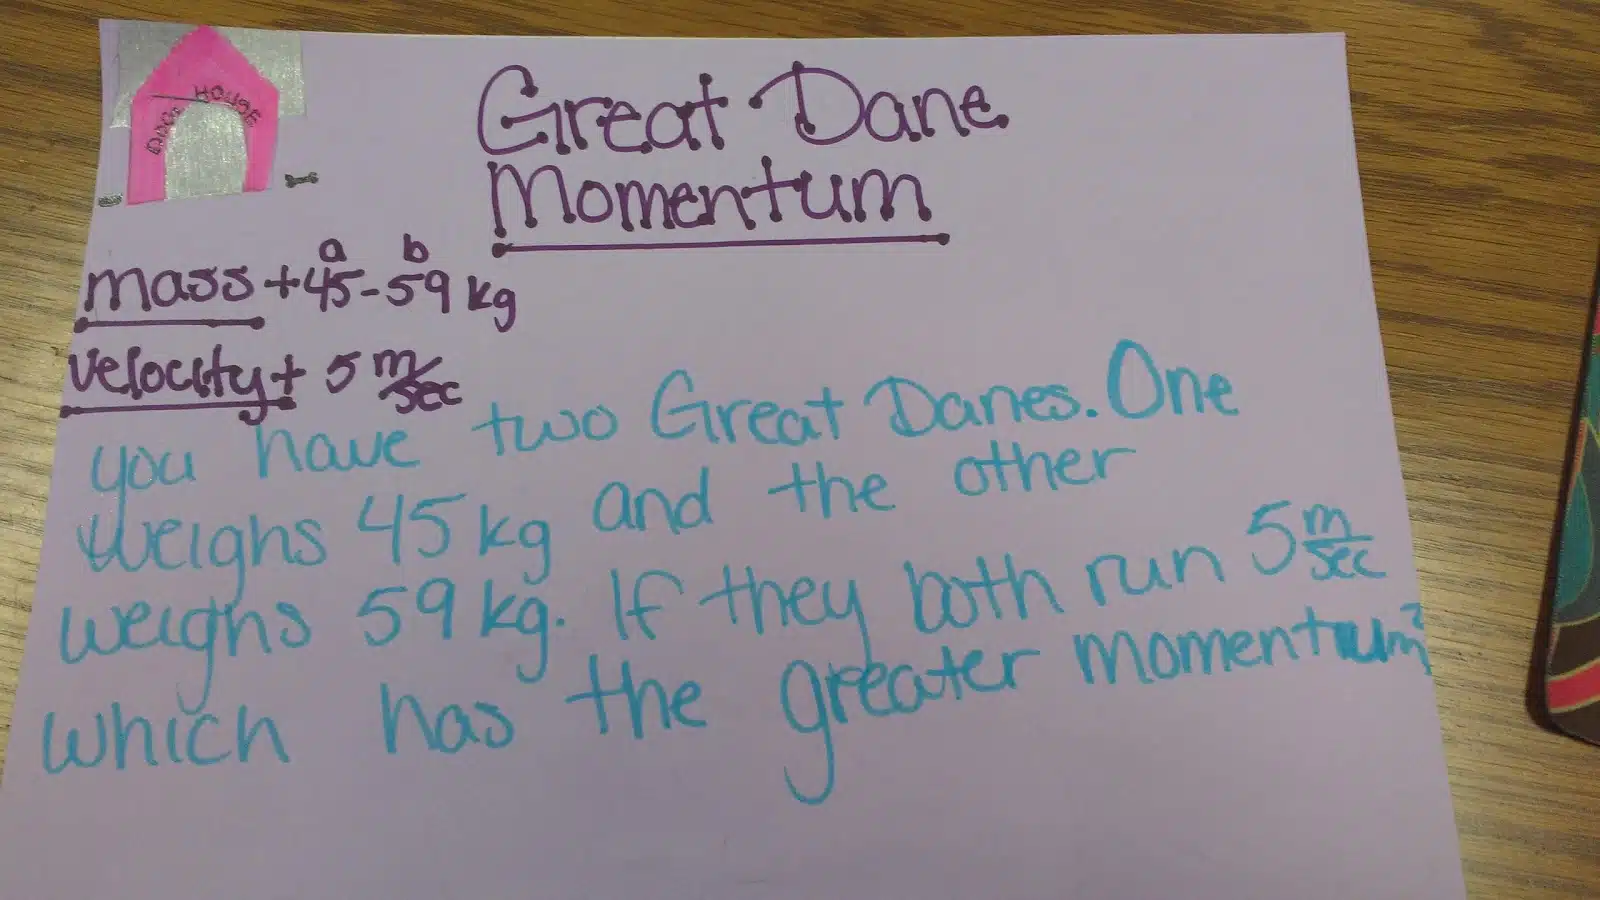 DOG HOUSE
Great Dane
Momentum
a b
mass + 45 - 59 kg
velocity + 5 m/sec
you have two Great Danes. One
weighs 45 kg and the other
weighs 59 kg. If they both run 5 m/sec
which has the greater momentum?